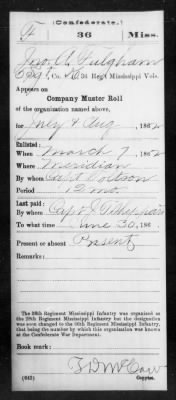 (Confederate.)
F 36 Miss.
Jno. A. Fulgham
Co. 36 Reg't Mississippi Vols.
Appears on
Company Muster Roll
of the organization named above,
for July & Aug, 1862
Enlisted:
When March 7, 1862
Where Meridian
By whom Capt
Period 12 mo.
Last paid:
By whom Capt J
To what time June 30, 186
Present or absent Present
Remarks:
The 36th Regiment Mississippi Infantry was organized as
the 28th Regiment Mississippi Infantry but the designation
was soon changed to the 36th Mississippi Infantry,
that being the number by which this organization was known at the
Confederate War Department.
Book mark:
(642)
Copyist.